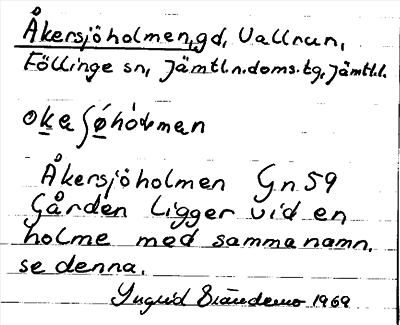 Åkersjöholmen, gd, Vallrun,
Föllinge sn, Jämtl.n.doms.tg, Jämtl.l.
Åkersjöholmen Gn 59
Gården ligger vid en
holme med samma namn.
se denna.
Yngvid Brändemo 1969